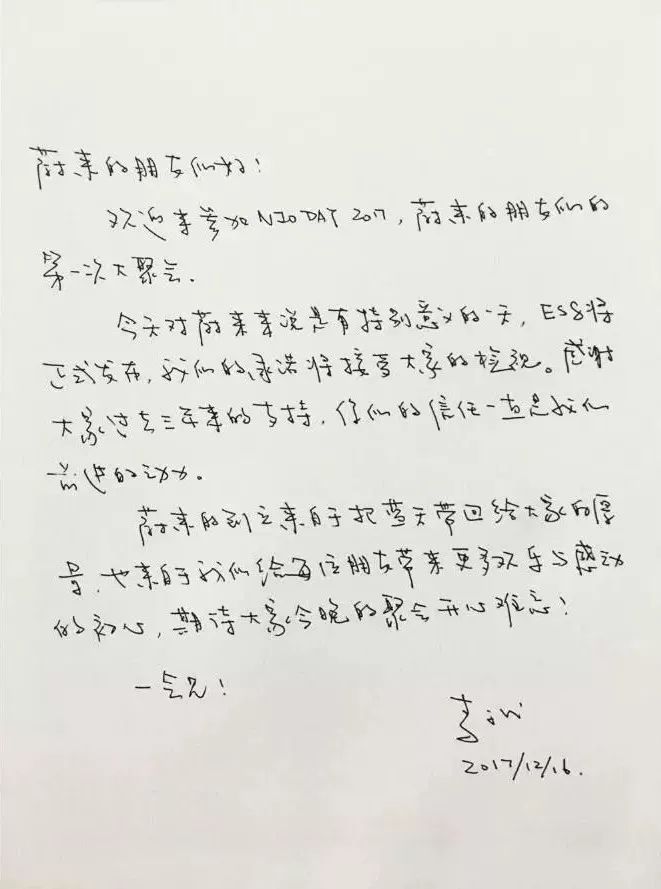 蔚来的朋友们好!
欢迎来参加NIODAY 2017,蔚来的朋友们的
第一次大聚会.
今天对蔚来来说是有特别意义的一天,ES8将
正式发布,我们的承诺将接受大家的检视。感谢
大家过去三年来的支持,你们的信任一直是我们
前进的动力。
蔚来的创立来自于把蓝天带回给大家的愿
景,也来自于我们给每位朋友带来更多欢乐与感动
的初心,期待大家今晚的聚会开心难忘!
一会见!
李斌
2017/12/16.